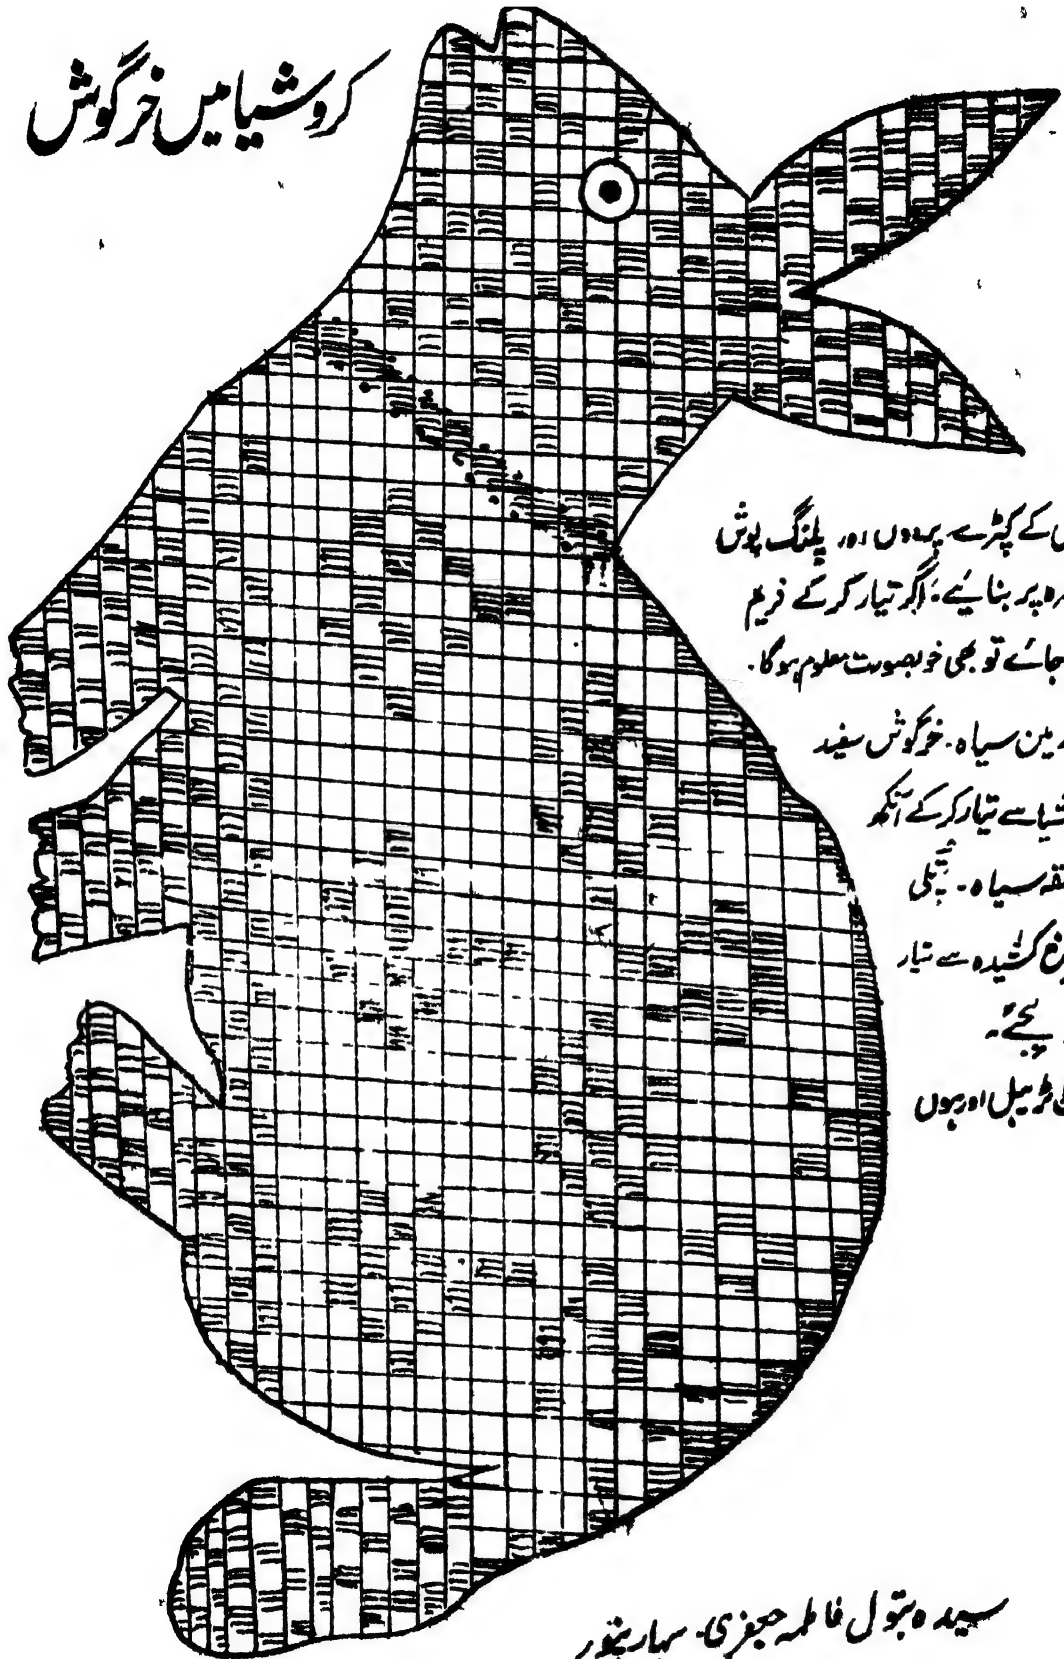 کروشیا میں خرگوش
کے کپڑے پردوں اور پلنگ پوش
پر بنائیے، اگر تیار کرکے فریم
جائے تو بھی خوبصورت معلوم ہوگا۔
سیاہ۔ خرگوش سفید
سے تیار کرکے آنکھ
سیاہ۔ پتلی
کشیدہ سے تیار
اور
سیدہ بتول فاطمہ جعفری۔ سہارنپور